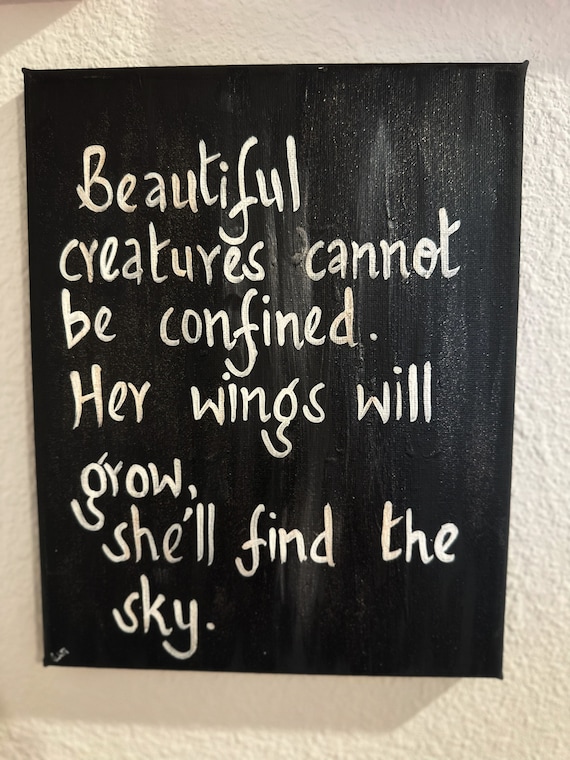 Beautiful
creatures cannot
be confined.
Her wings will
grow,
she'll find the
sky.